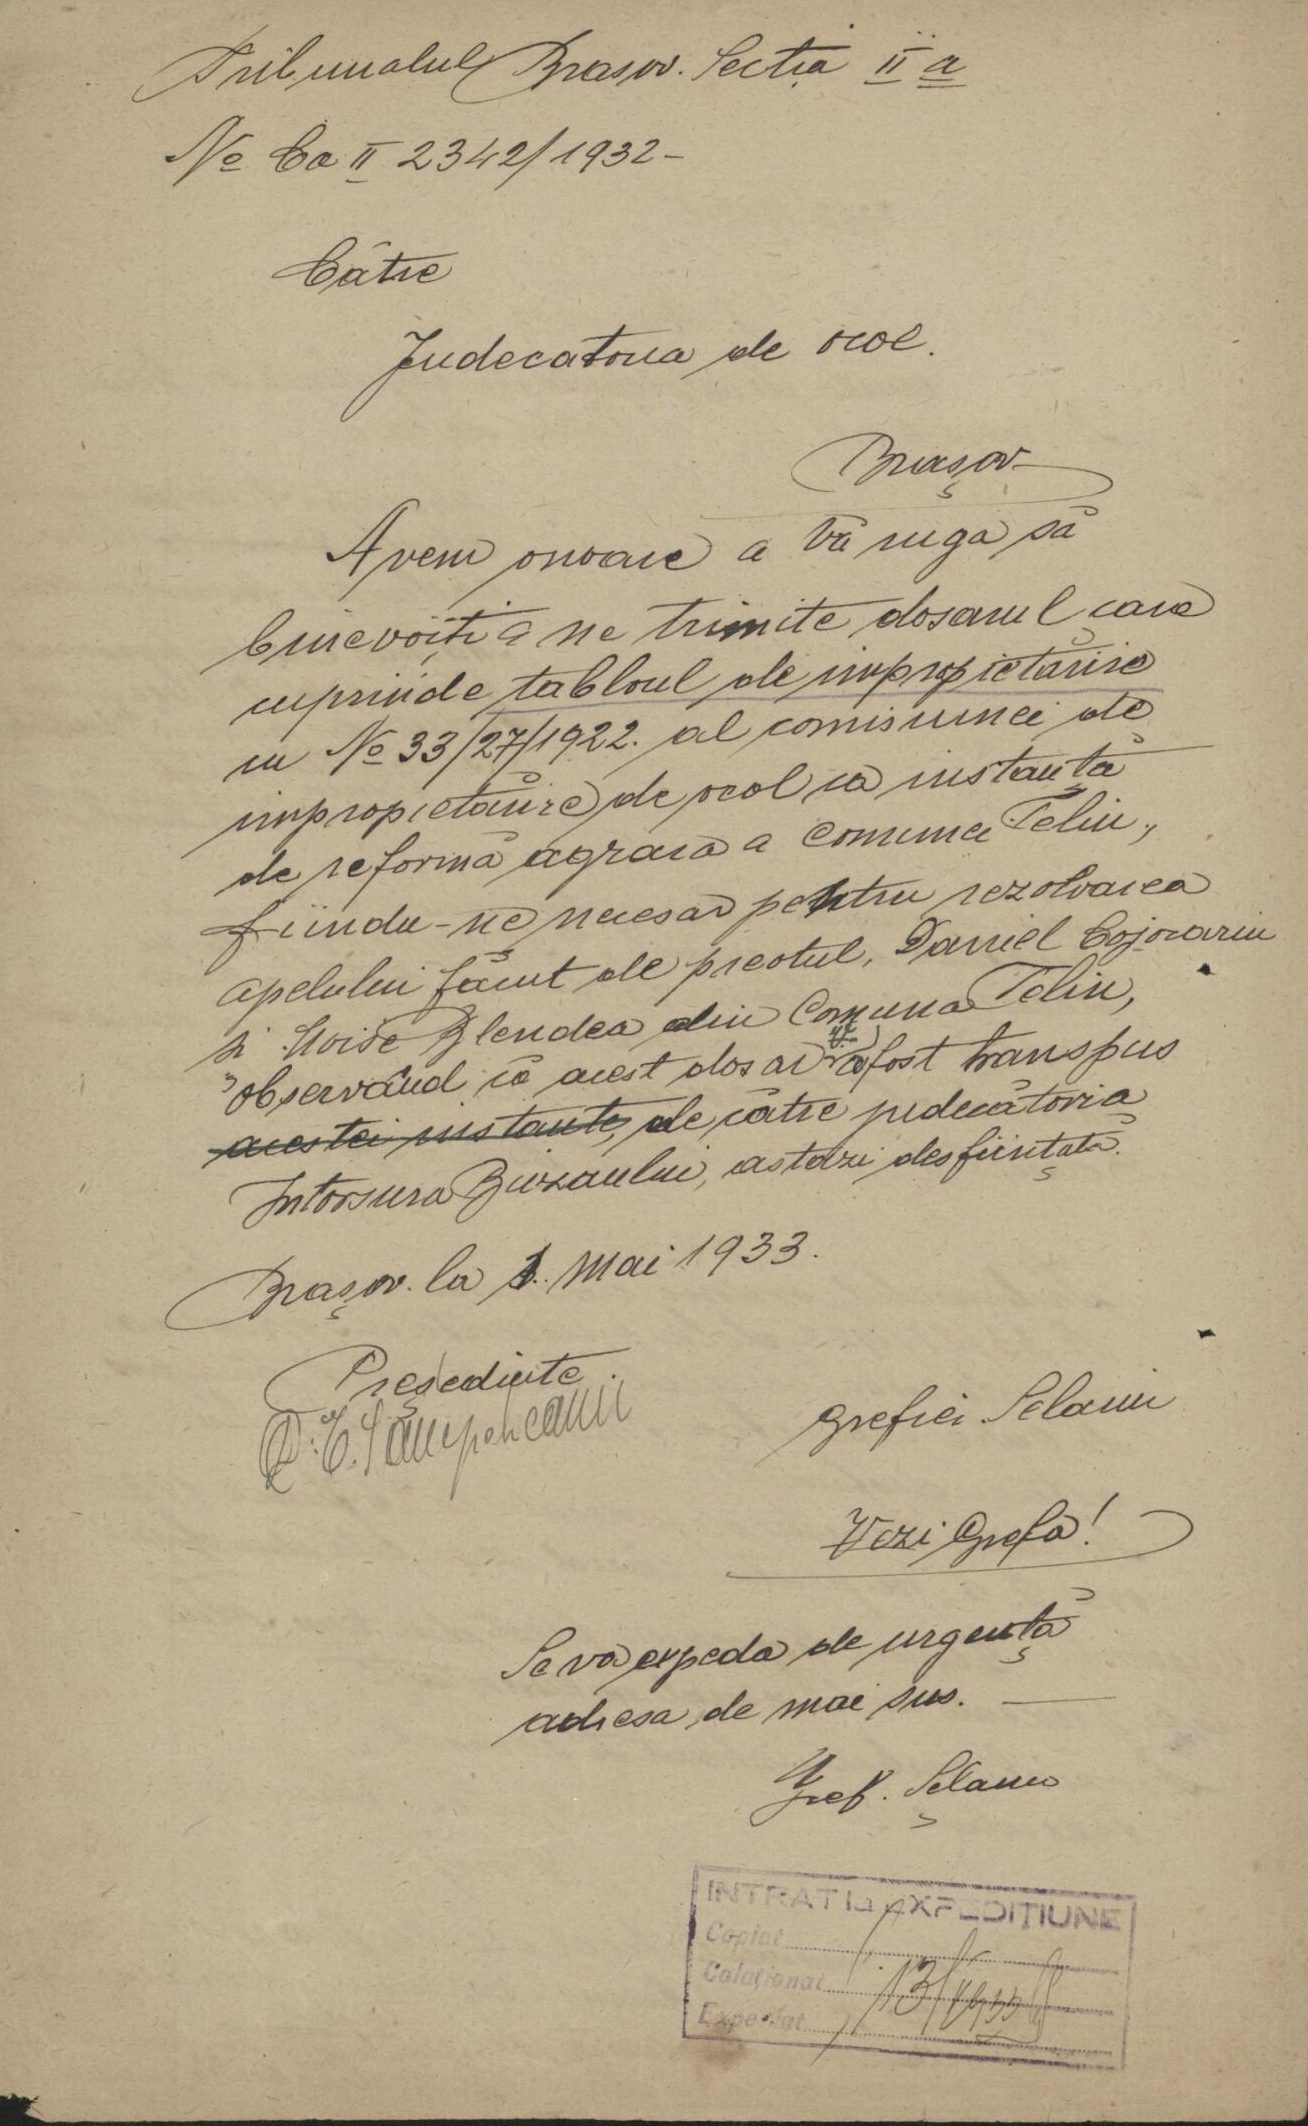 Tribunalul Brasov. Secția II a
No Ca II 2342/1932-
Cătie
Judecatoria de ocol.
Brașov
Avem onoare a Vă ruga să
binevoiți a ne trimite dosarul care
cuprinde tabloul de impropietărire
cu No 33/27/1922. al comisiunei de
impropietărire de ocol ca instanță
de reformă agrară a comunei Teliu,
fiindu-ne necesar pentru rezolvarea
apelului făcut de preotul, Daniel Cojocariu
și Moise Blendea din Comuna Teliu,
observând că acest dosar a fost transpus
acestei instante, de cătie judecătoria
Intorsura Buzaului, astazi desființată.
Brașov. la 1. Mai 1933.
Președinte.
Grefier Selariu
Vezi Grefa!
Se va expeda de urgență
adresa de mai sus.
Gref. Șelariu
INTRAT LA EXPEDIȚIUNE
Copiat
Colaționat
Expediat
13/